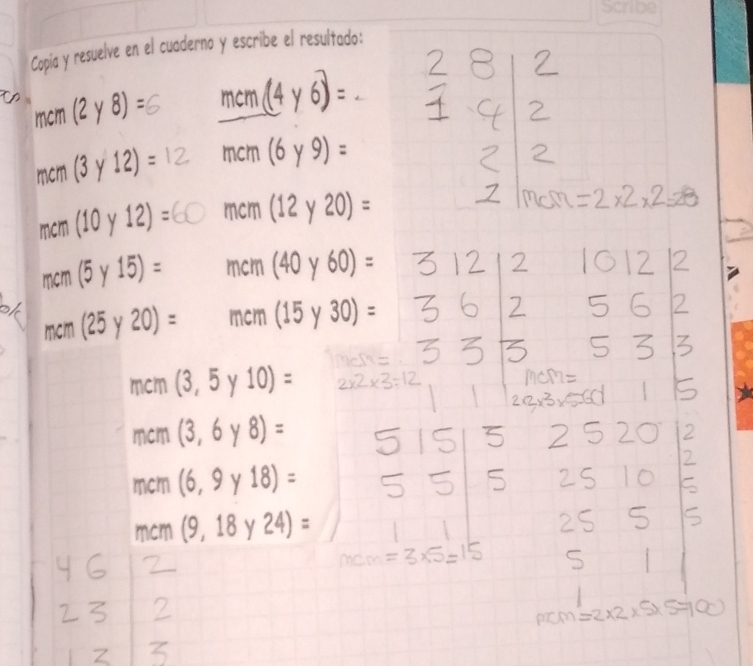 Scribe
Copia y resuelve en el cuaderno y escribe el resultado:
mcm (2 y 8) = 6
mcm (4 y 6) = -
mcm (3 y 12) = 12
mcm (6 y 9) =
mcm (10 y 12) = 60
mcm (12 y 20) =
mcm (5 y 15) =
mcm (40 y 60) =
mcm (25 y 20) =
mcm (15 y 30) =
mcm (3, 5 y 10) =
mcm (3, 6 y 8) =
mcm (6, 9 y 18) =
mcm (9, 18 y 24) =
2 8 | 2
1 4 | 2
2 | 2
1 | mcm = 2 x 2 x 2 =
3 12 | 2
3 6 | 2
3 3 | 3
1 1
mcm =
2x2x3=12
10 12 | 2
5 6 | 2
5 3 | 3
1 | 5
mcm =
2x2x3x5=60
5 15 | 3
5 5 | 5
1 1
mcm = 3x5=15
25 20 | 2
2
25 10 | 5
25 5 | 5
5 1
1
mcm = 2x2x5x5=100
4 6 | 2
2 3 | 2
1 3 | 3